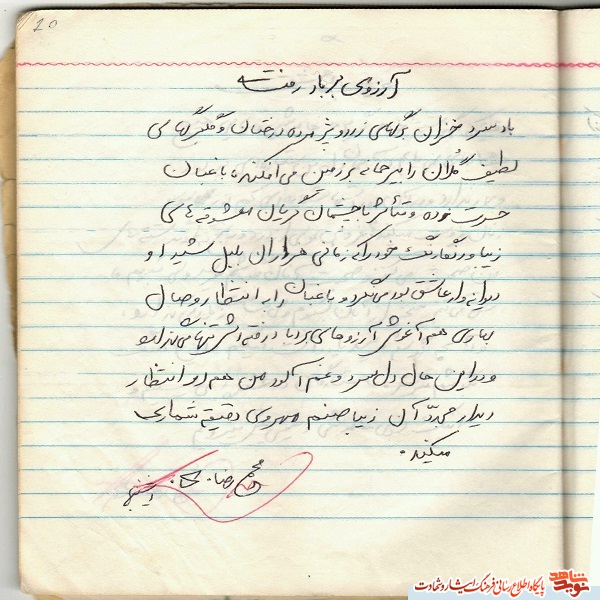 20
آرزوی بر باد رفته
باد سرد خزان برگهای زرد و پژمرده درختان و گلبرگهای
لطیف گلان را بیرحمانه بر زمین می افکند، باغبان
حسرت خورده و متأثر با چشمان گریان معشوقه های
زیبا و رنگارنگ خود را که زمانی هزاران بلبل شیدا و
دیوانه وار عاشق بود می نگرد و باغبان را به انتظار وصال
بهاری هم آغوش آرزوهای بر باد رفته اش تنها می گذارد
و در این حال دل سرد و غم آلود من هم در انتظار
دیدار مجدد آن زیبا صنم مهروی دقیقه شماری
میکند.
محمد رضا
نوید شاهد پایگاه اطلاع رسانی فرهنگ ایثار و شهادت